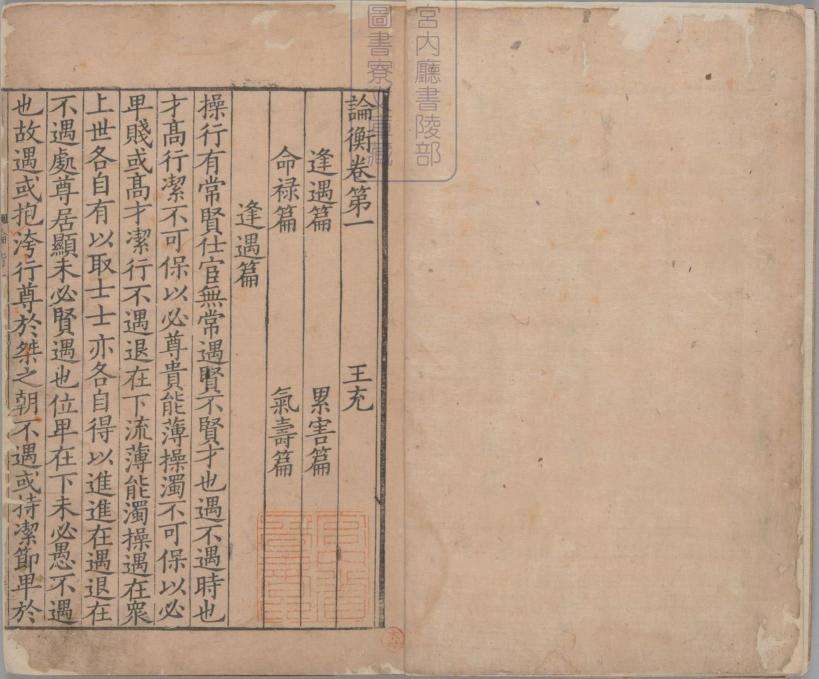 宮内廳書陵部
圖書寮
論衡卷第一 王充
逢遇篇 累害篇
命禄篇 氣壽篇
逢遇篇
操行有常賢仕宦無常遇賢不賢才也遇不遇時也
才髙行潔不可保以必尊貴能薄操濁不可保以必
卑賤或髙才潔行不遇退在下流薄能濁操遇在衆
上世各自有以取士士亦各自得以進進在遇退在
不遇處尊居顯未必賢遇也位卑在下未必愚不遇
也故遇或抱洿行尊於桀之朝不遇或持潔節卑於